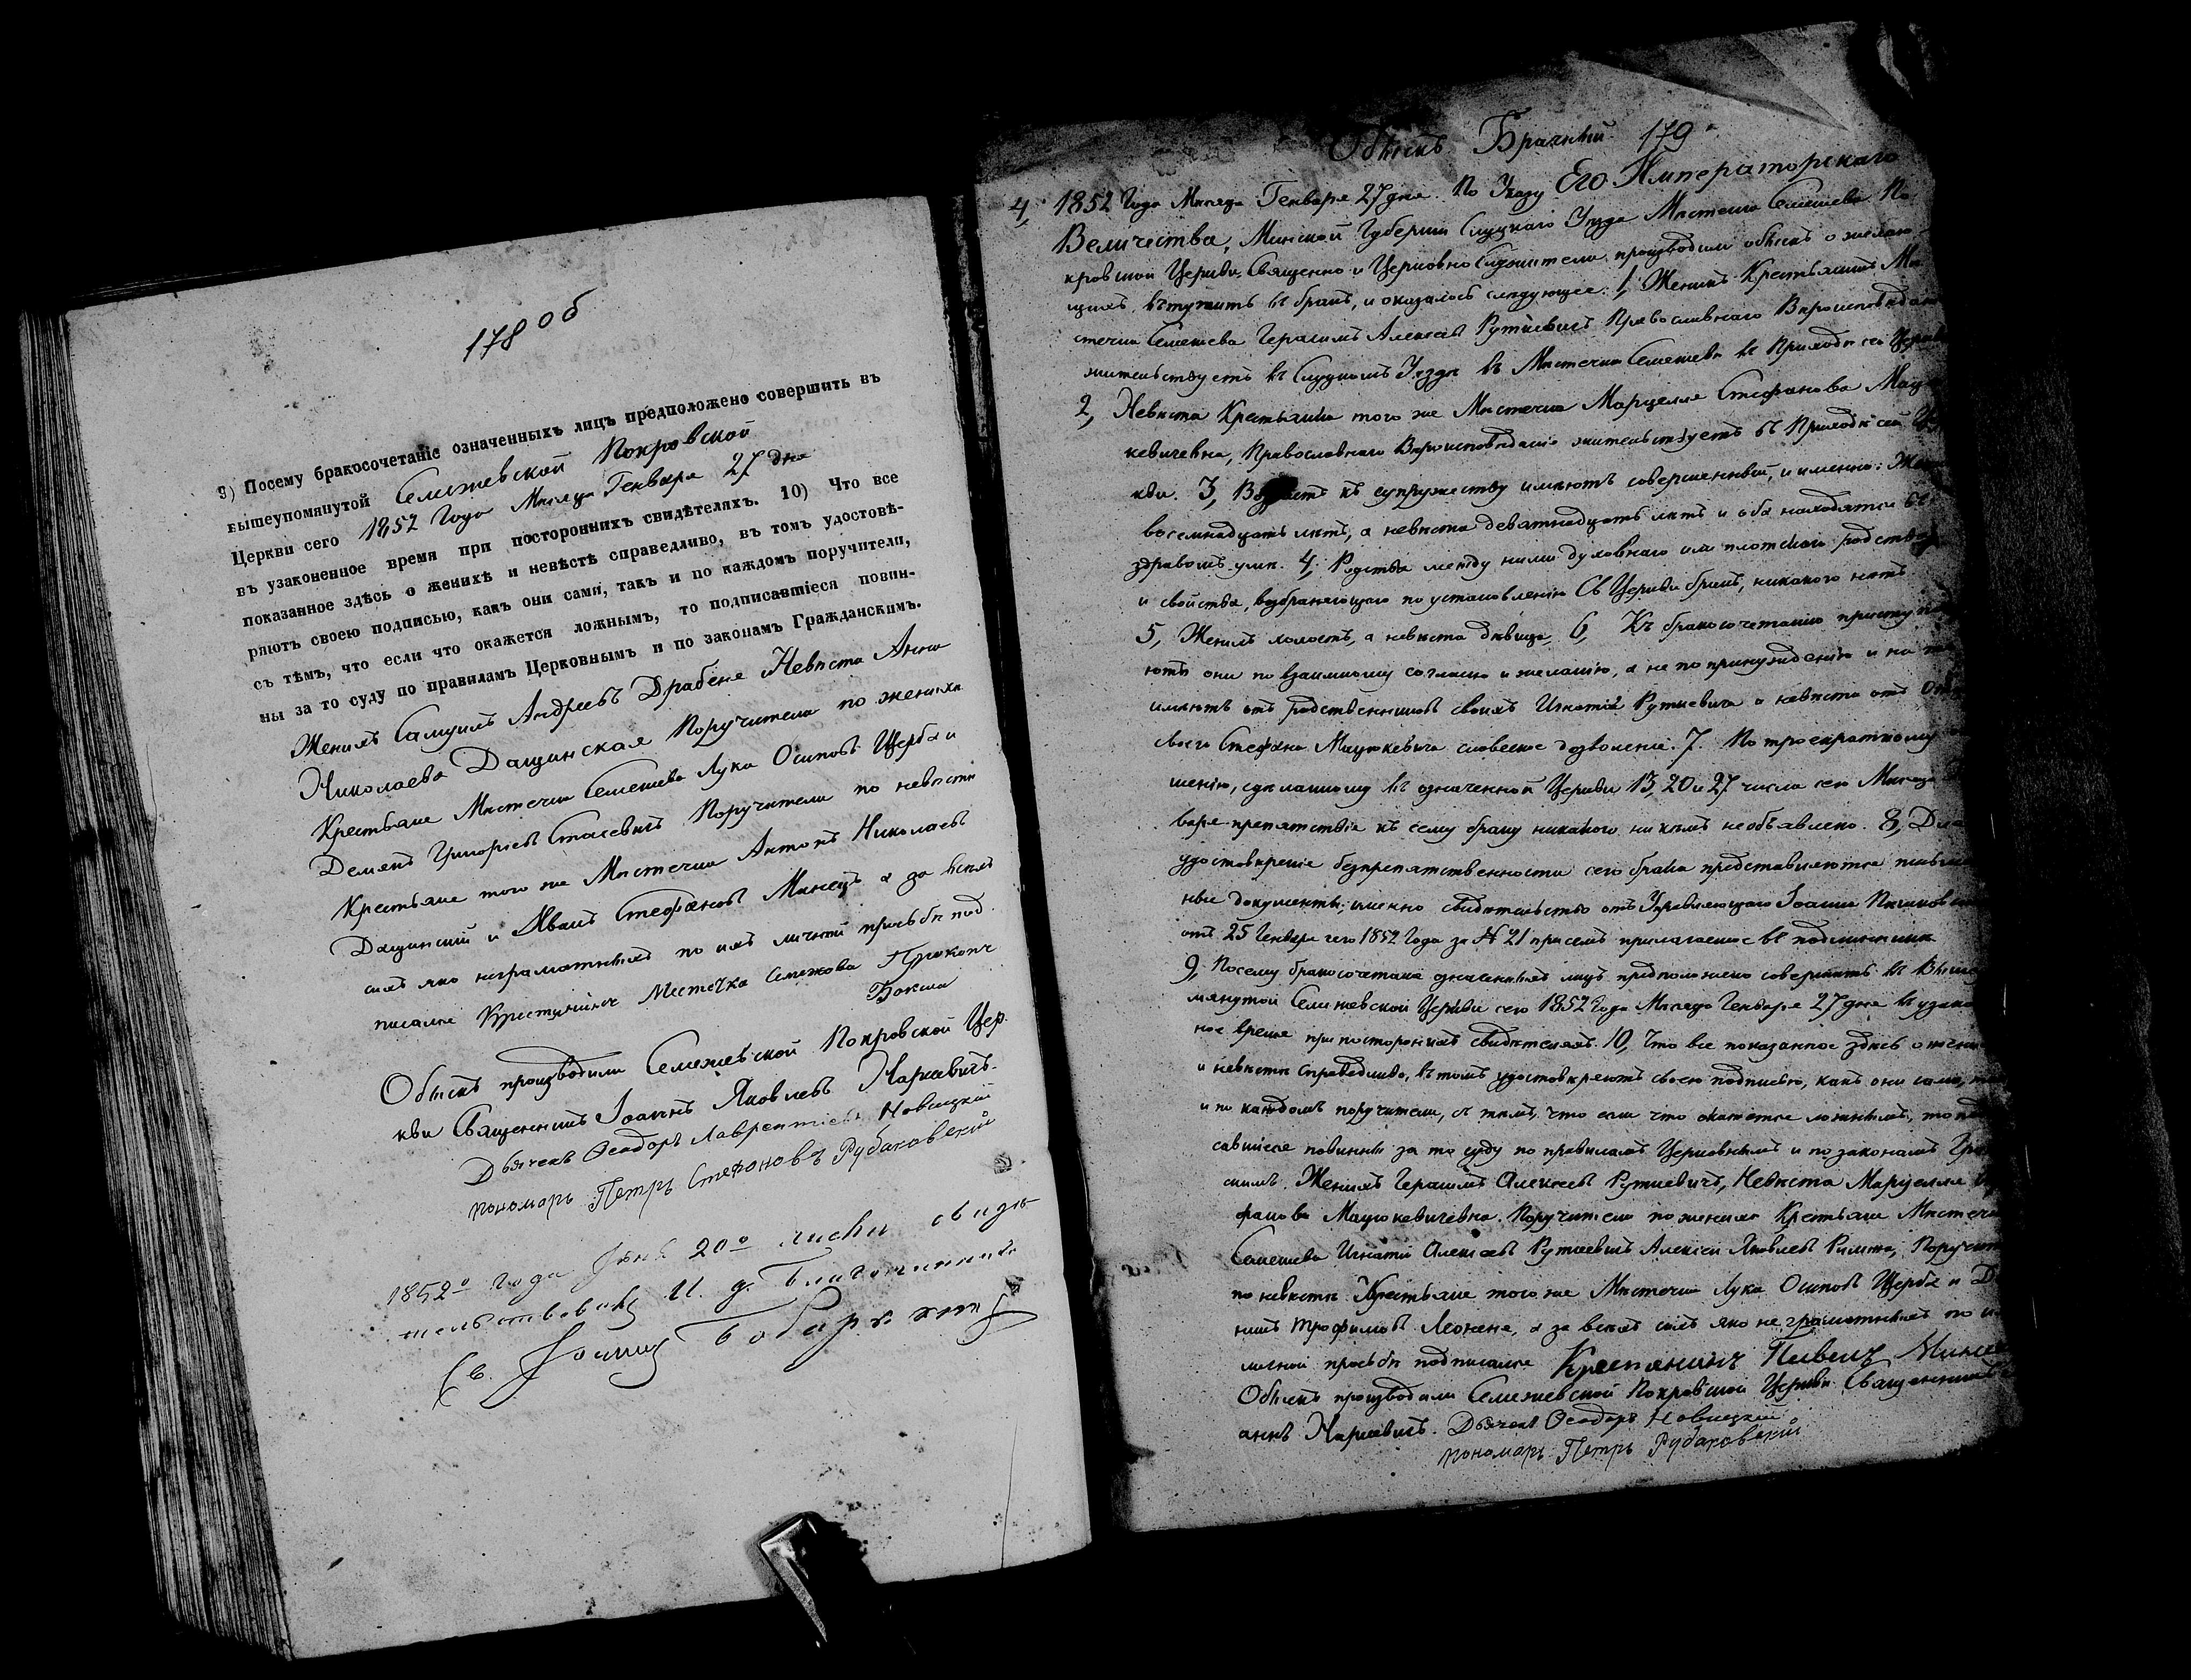 178 об
9) Посему бракосочетаніе означенныхъ лицъ предположено совершить въ
вышеупомянутой Семежевской Покровской
Церкви сего 1852 Года Месяца Генваря 27 дня
въ узаконенное время при постороннихъ свидѣтеляхъ. 10) Что все
показанное здѣсь о женихѣ и невѣстѣ справедливо, въ томъ удостовѣ-
ряютъ своею подписью, какъ они сами, такъ и по каждомъ поручители,
съ тѣмъ, что если что окажется ложнымъ, то подписавшіеся повин-
ны за то суду по правиламъ Церковнымъ и по законамъ Гражданскимъ.
Женихъ Самуилъ Андреевъ Драбеня Невѣста Анна
Николаева Дащинская Поручители по женихѣ
Крестьяне Мѣстечка Семежева Лука Осиповъ Щерба и
Демянъ Григорьевъ Стасевичъ Поручители по невѣстѣ
Крестьяне того же Мѣстечка Антонъ Николаевъ
Дащинскій и Иванъ Стефановъ Минецъ а за всѣхъ
сихъ яко неграмотныхъ по ихъ личной прозьбѣ под
писался Крестьянинъ Местечка Семежова
Бокша
Обыскъ производили Семежевской Покровской Цер.
кви Священникъ Іоаннъ Яковлевъ Наркевичъ.
Дьячекъ Ѳеодоръ Лаврентіевъ Новицкій
пономарь Петръ Стефоновъ Рубановскій
1852º года 20º свидѣ
тельствовалъ И. д. Благочиннаго
Св.
Обыскъ Брачный 179
4, 1852 Года Месяца Генваря 27 дня По Указу Его Императорскаго
Величества, Минской Губерніи Слуцкаго Уѣзда Мѣстечка Семежева По
кровской Церкви Священно и Церковно Служители производили обыскъ о желаю
щихъ вступить въ бракъ, и оказалось слѣдующее: 1, Женихъ Крестьянинъ Мѣ
стечка Семежева Герасимъ Алексѣевъ Руткевичъ Православнаго Вѣроисповѣданія
жительствуетъ въ Слуцкомъ Уѣздѣ въ Мѣстечкѣ Семежевѣ въ Приходѣ сей Церкви
2, Невѣста Крестьянка того же Мѣстечка Марцелля Стефанова Мацю
кевичевна, Православнаго Вѣроисповѣданія жительствуетъ въ Приходѣ сей
кви. 3, Возрастъ къ супружеству имѣютъ совершенный, и именно:
восемнадцать лѣтъ, а невѣста девятнадцать лѣтъ и оба находятся въ
здравомъ умѣ. 4, Родства между ними духовнаго или плотскаго родства
и свойства, возбраняющаго по установленію Св Церкви бракъ, никакого нѣтъ
5, Женихъ холостъ, а невѣста дѣвица, 6, Къ бракосочетанію приступа
ютъ они по взаимному согласію и желанію, а не по принужденію и на
имѣютъ отъ родственниковъ своихъ Игнатія Руткевича а невѣста отъ
своего Стефана Мацюкевича словесное дозволеніе. 7. По троекратному
шенію, сдѣланному въ означенной Церкви 13, 20 и 27 числа сего Месяца
варя препятствія къ сему браку никакого никѣмъ необъявлено. 8, Для
удостовѣренія безпрепятственности сего брака представляются письмен
ные документы, именно свидѣтельство отъ Управляющаго Іоанна
отъ 25 Генваря сего 1852 Года за № 21 присемъ прилагаемое въ подлинникѣ
9, Посему бракосочетаніе означенныхъ лицъ предположено совершить въ Выше
мянутой Семежевской Церкви сего 1852 Года Месяца Генваря 27 дня въ узако
ное время при постороннихъ свидѣтеляхъ. 10, Что все показанное здѣсь о женихѣ
и невѣстѣ справедливо, въ томъ удостовѣряютъ своею подписью, какъ они сами,
и по каждомъ поручители, съ тѣмъ, что если что окажется ложнымъ, то под
савшіеся повинны за то суду по правиламъ Церковнымъ и по законамъ Граж
скимъ. Женихъ Герасимъ Алексѣевъ Руткевичъ, Невѣста Марцелля
фанова Мацюкевичевна. Поручители по женихѣ Крестьяне Мѣстечка
Семежева Игнатій Алексѣевъ Руткевичъ Алексѣй Яковлевъ Римша, Поручит
по невѣстѣ Крестьяне того же Мѣстечка Лука Осиповъ Щерба и
Трофимовъ а за всѣхъ сихъ яко не грамотныхъ по
личной прозьбѣ подписался Крестянинъ Павелъ Минец
Обыскъ производили Семежевской Покровской Церкви Священникъ
аннъ Наркевичъ. Дьячекъ Ѳеодоръ Новицкій
пономарь Петръ Рубановскій